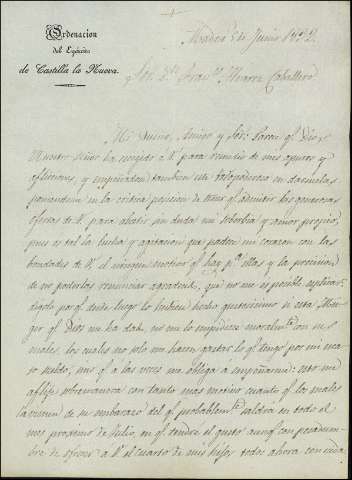 Ordenacion
del Egército
de Castilla la Nueva.
Madrid 5 de Junio 1842.
Sor. Dn. Franco. Alvarez Caballero
Mi Dueño, Amigo y Sor: Parece qe. Dios
Nuestro Señor ha escogido a V. para remedio de mis apuros y
aflicciones, y empeñadose tambien este todopoderoso en
ponerme en la critica posicion de tener qe. admitir las generosas
ofertas de V. para abatir sin duda mi soberbia y amor propio,
pues es tal la lucha y agitacion que padece mi corazon con las
bondades de V. el ningun motivo qe. hay pa. ellas y la precision
de no poderlas renunciar agradecido, que no me es posible explicar
luego lo hubiera hecho gustosisimo si esta Mu-
ger qe. Dios me ha dado, no me lo impidiera moralmte. con sus
males, los cuales no solo me hacen gastar lo qe. tengo por mi esca-
so sueldo, sino qe. a las veces me obliga a empeñarme: esto me
aflije sobremanera con tanto mas motivo cuanto qe. los males
la vienen de su embarazo del qe. probablemte. saldra en todo el
mes proximo de Julio, en qe. tendre el gusto aunqe. con pesadum-
bre de ofrecer a V. el cuarto de mis hijos todos ahora con cuida